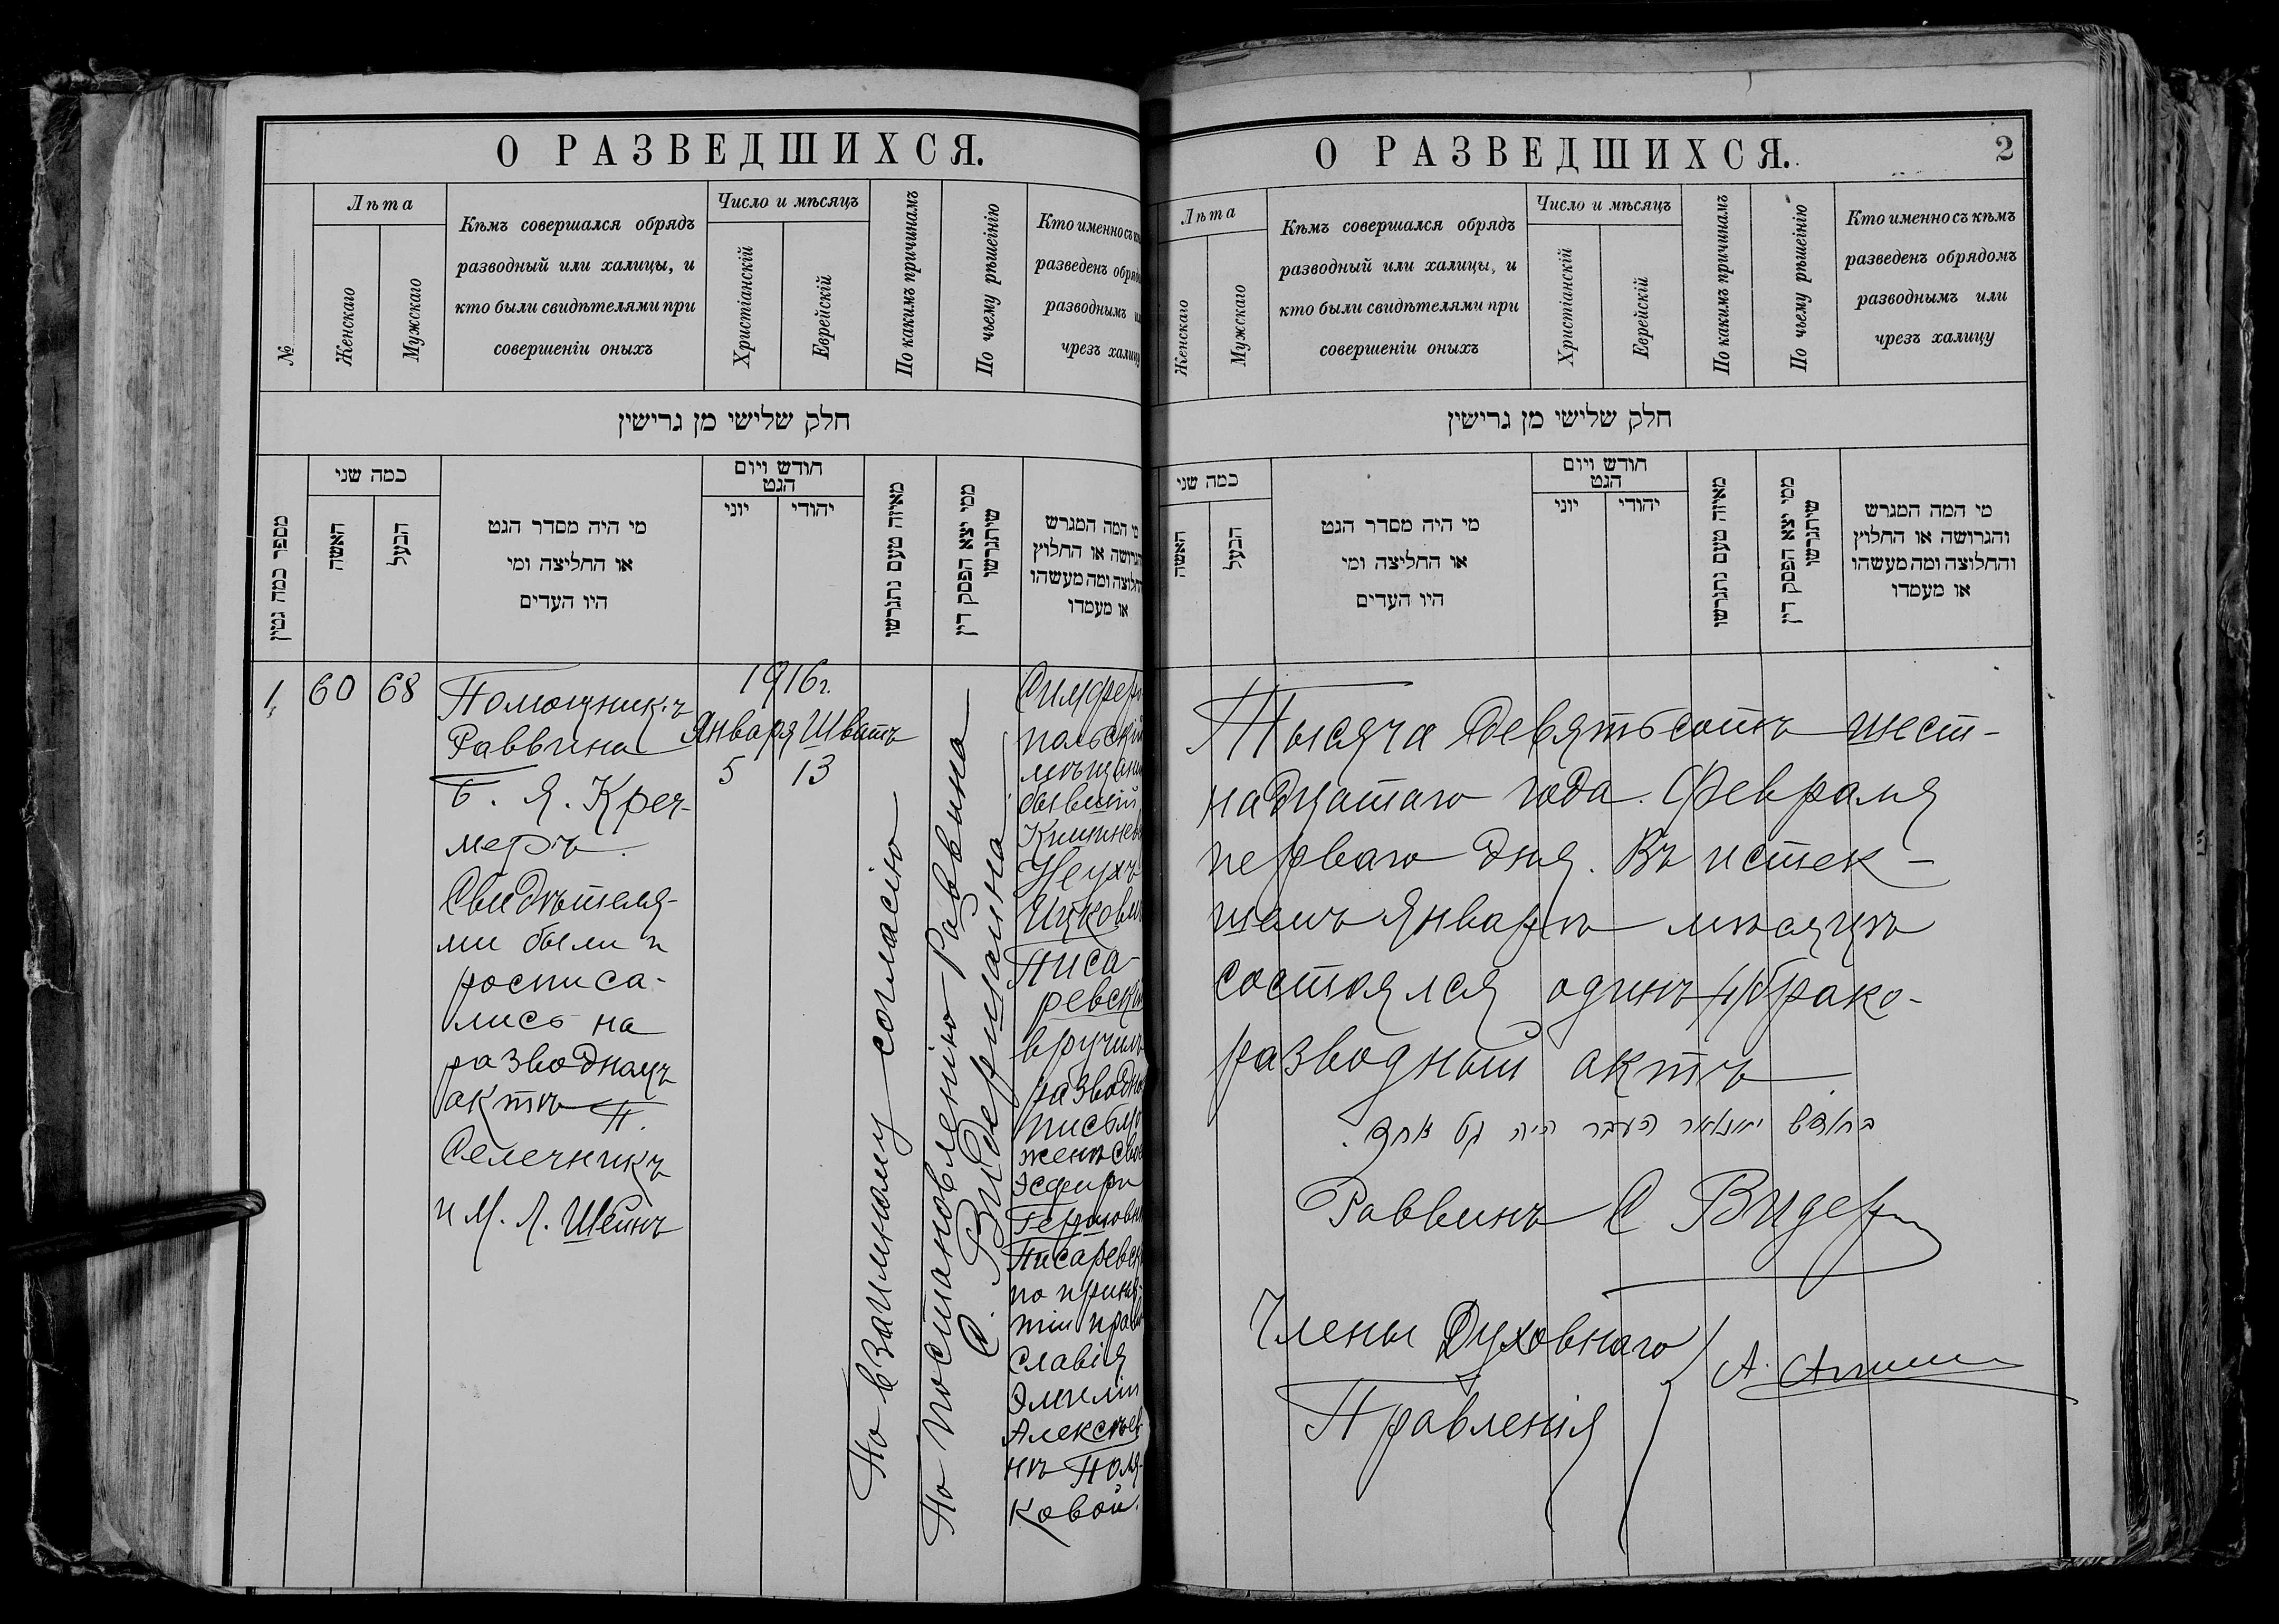 О РАЗВЕДШИХСЯ.
№
Лѣта
Женскаго
Мужскаго
Кѣмъ совершался обрядъ
разводный или халицы, и
кто были свидѣтелями при
совершеніи оныхъ
Число и мѣсяцъ
Христіанскій
Еврейскій
По какимъ причинамъ
По чьему рѣшеінію
Кто именно съ
разведенъ обря
разводнымъ и
чрезъ халицу
חלק שלישי מן גרישין
מספר כמה גטין
כמה שני
האשה
הבעל
מי היה מסדר הגט
או החליצה ומי
היו העדים
חודש ויום
הגט
יוני
יהודי
מאיזה טעם נתגרשו
ממי יצא הפסק דין
שיתגרשו
מי המה המגרש
והגרושה או החלוץ
והחלוצה ומה מעשהו
או מעמדו
1,
60
68
Помощникъ
Раввина
Б. Я. Креч-
меръ.
Свидѣтеля-
ми были и
росписа-
лись на
разводномъ
актѣ П.
Селечникъ
и М. Л. Шейнъ
1916г.
Января Шватъ
5 13
По взаимному согласію
По постановленію Раввина
С. Видермана
Симферо
польскій
мѣщани
бывшій
Кишинев
Неухъ
Ицкови
Писа-
ревскі
вручилъ
разводно
письмо
женѣ свое
Эсфири
Герш овн
Писаревск
по приня-
тіи право
славія
Эмиліи
Алексѣев
нѣ Поля-
ковой.
О РАЗВЕДШИХСЯ.
2
Лѣта
Женскаго
Мужскаго
Кѣмъ совершался обрядъ
разводный или халицы, и
кто были свидѣтелями при
совершеніи оныхъ
Число и мѣсяцъ
Христіанскій
Еврейскій
По какимъ причинамъ
По чьему рѣшеінію
Кто именно съ кѣмъ
разведенъ обрядомъ
разводнымъ или
чрезъ халицу
חלק שלישי מן גרישין
כמה שני
האשה
הבעל
מי היה מסדר הגט
או החליצה ומי
היו העדים
חודש ויום
הגט
יוני
יהודי
מאיזה טעם נתגרשו
ממי יצא הפסק דין
שיתגרשו
מי המה המגרש
והגרושה או החלוץ
והחלוצה ומה מעשהו
או מעמדו
Тысяча девятьсотъ шест-
надцатаго года. Февраля
перваго дня. Въ истек-
шемъ Январѣ мѣсяцѣ
состоялся одинъ /1/ брако-
разводный актъ.
בחודש יאנואר העבר היה גט אחד.
Раввинъ С Видерм
Члены Духовнаго
Правленія
А.